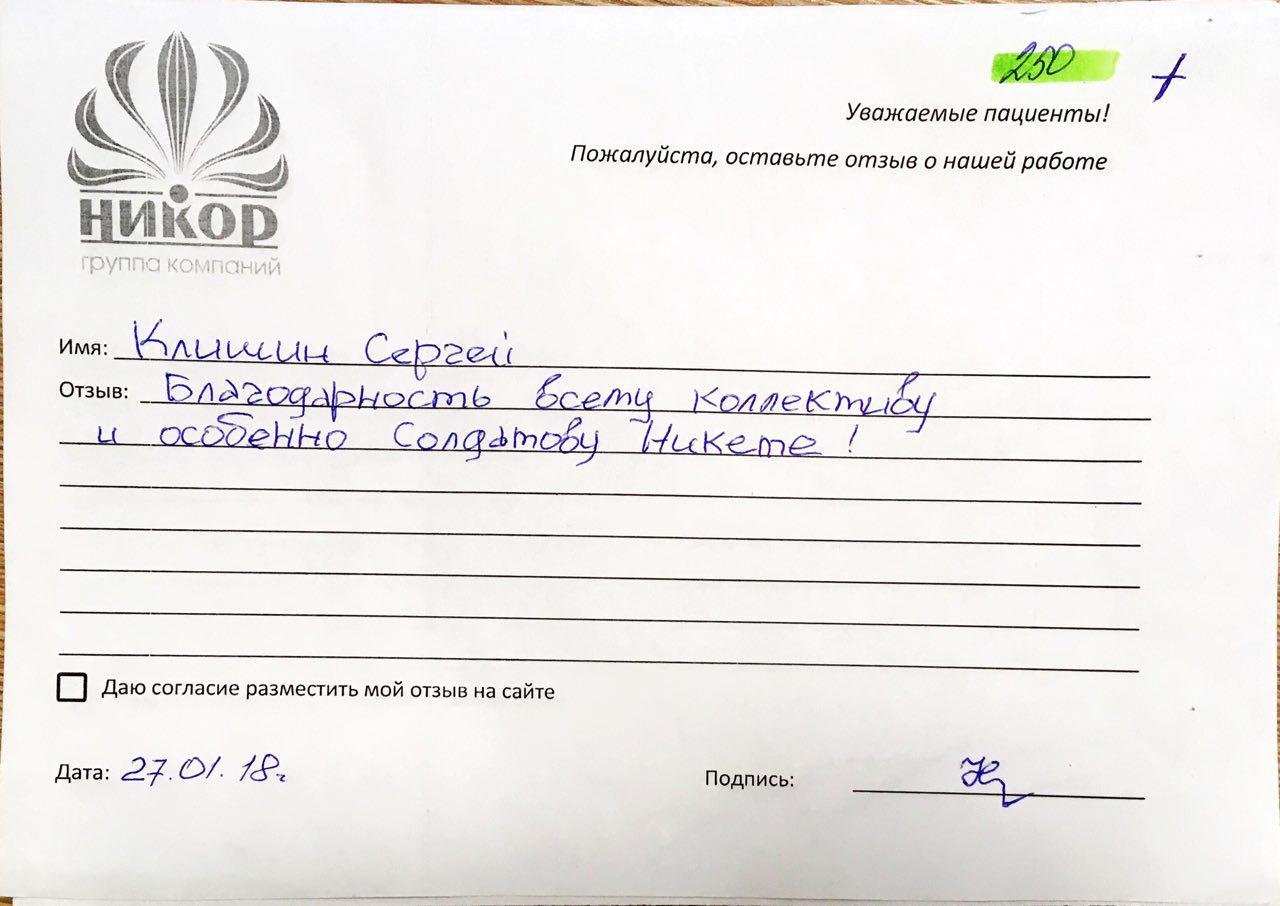 250 +
Уважаемые пациенты!
Пожалуйста, оставьте отзыв о нашей работе
НИКОР
группа компаний
Имя: Клишин Сергей
Отзыв: Благодарность всему коллективу
и особенно Солдатову Никете!
Даю согласие разместить мой отзыв на сайте
Дата: 27.01.18г
Подпись: